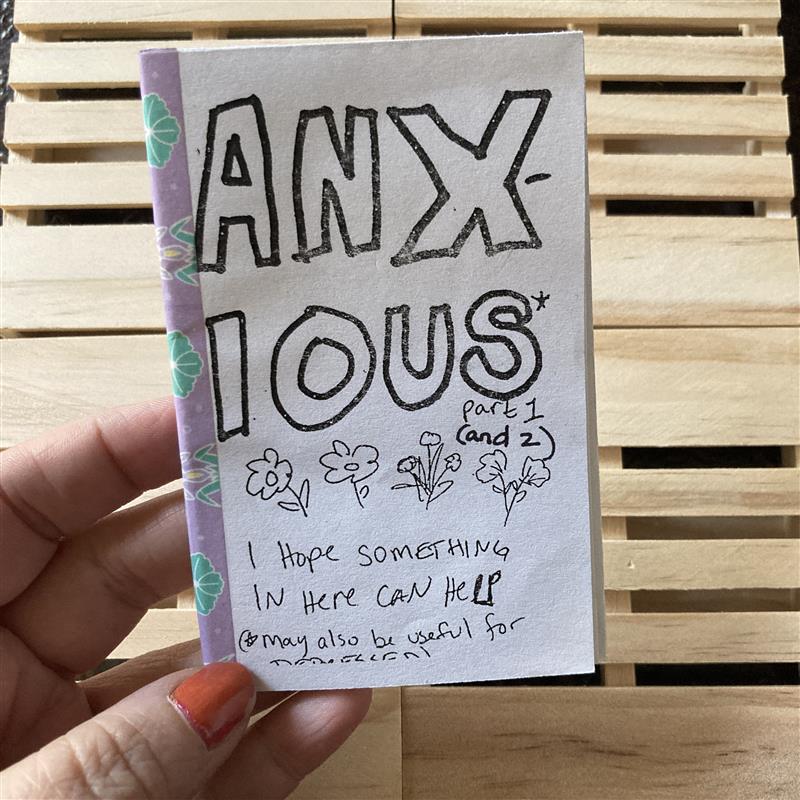 ANX-
IOUS*
part 1
(and 2)
I HOPE SOMETHING
IN HERE CAN HELP
(* may also be useful for